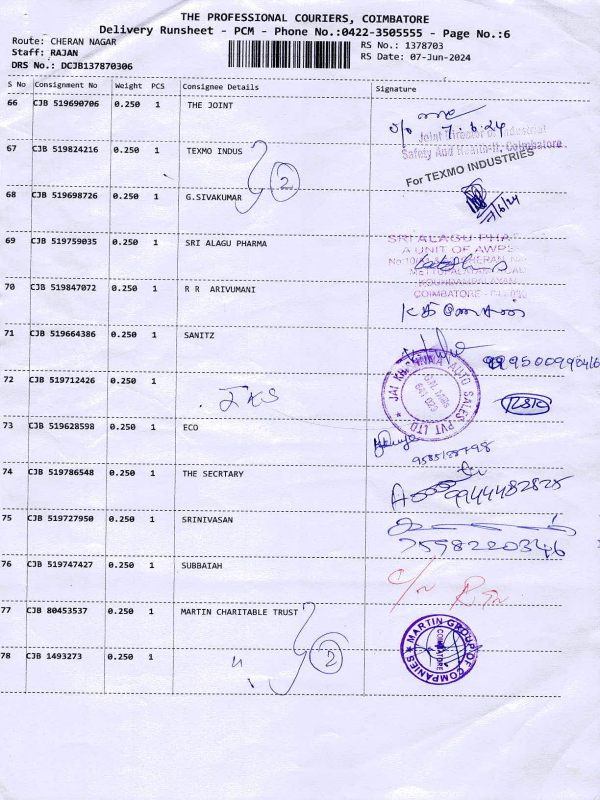 THE PROFESSIONAL COURIERS, COIMBATORE
Delivery Runsheet - PCM - Phone No.:0422-3505555 - Page No.:6
Route: CHERAN NAGAR
RS No.: 1378703
Staff: RAJAN
RS Date: 07-Jun-2024
DRS No.: DCJB137870306
S No Consignment No Weight PCS Consignee Details Signature
66 CJB 519690706 0.250 1 THE JOINT
7.6.24
Joint Director of Industrial
Safety And Health-II, Coimbatore
67 CJB 519824216 0.250 1 TEXMO INDUS
For TEXMO INDUSTRIES
2
68 CJB 519698726 0.250 1 G.SIVAKUMAR
7/6/24
69 CJB 519759035 0.250 1 SRI ALAGU PHARMA
SRI ALAGU PHAR
A UNIT OF AWPS
COIMBATORE
70 CJB 519847072 0.250 1 R R ARIVUMANI
71 CJB 519664386 0.250 1 SANITZ
72 CJB 519712426 0.250 1 JKS
JAI KRISHNAA AUTO SALES PVT LTD
73 CJB 519628598 0.250 1 ECO
74 CJB 519786548 0.250 1 THE SECRTARY
9944482825
75 CJB 519727950 0.250 1 SRINIVASAN
7598220346
76 CJB 519747427 0.250 1 SUBBAIAH
c/n RTn
77 CJB 80453537 0.250 1 MARTIN CHARITABLE TRUST
MARTIN GROUP OF COMPANIES
COIMBATORE
78 CJB 1493273 0.250 1 "
2